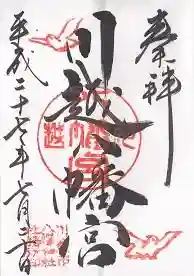 奉拝
川越八幡宮
平成二十七年七月二十日